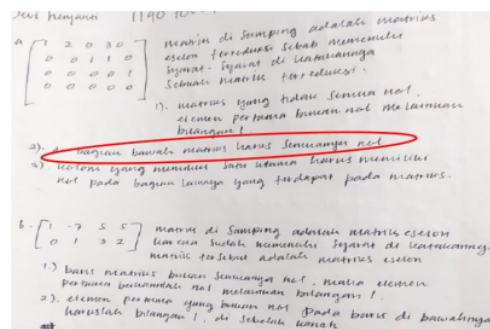 a. [ 1 2 0 3 0 matriks di samping adalah matriks
0 0 1 1 0 eselon tereduksi sebab memenuhi
0 0 0 0 1 syarat-syarat di katakannya
0 0 0 0 0 ] sebuah matriks tereduksi.
1). matriks yang tidak semua nol,
elemen pertama bukan nol melainkan
bilangan 1
2). di bagian bawah matriks harus semuanya nol
3). kolom yang memiliki satu utama harus memiliki
nol pada bagian lainnya yang terdapat pada matriks.
b. [ 1 -7 5 5 matriks di samping adalah matriks eselon
0 1 3 2 ] karena sudah memenuhi syarat di katakannya
matriks tersebut adalah matriks eselon
1.) baris matriks bukan semuanya nol, maka elemen
pertama bukanlah nol melainkan bilangan 1.
2). elemen pertama yang bukan nol pada baris di bawahnya
haruslah bilangan 1, di sebelah kanan